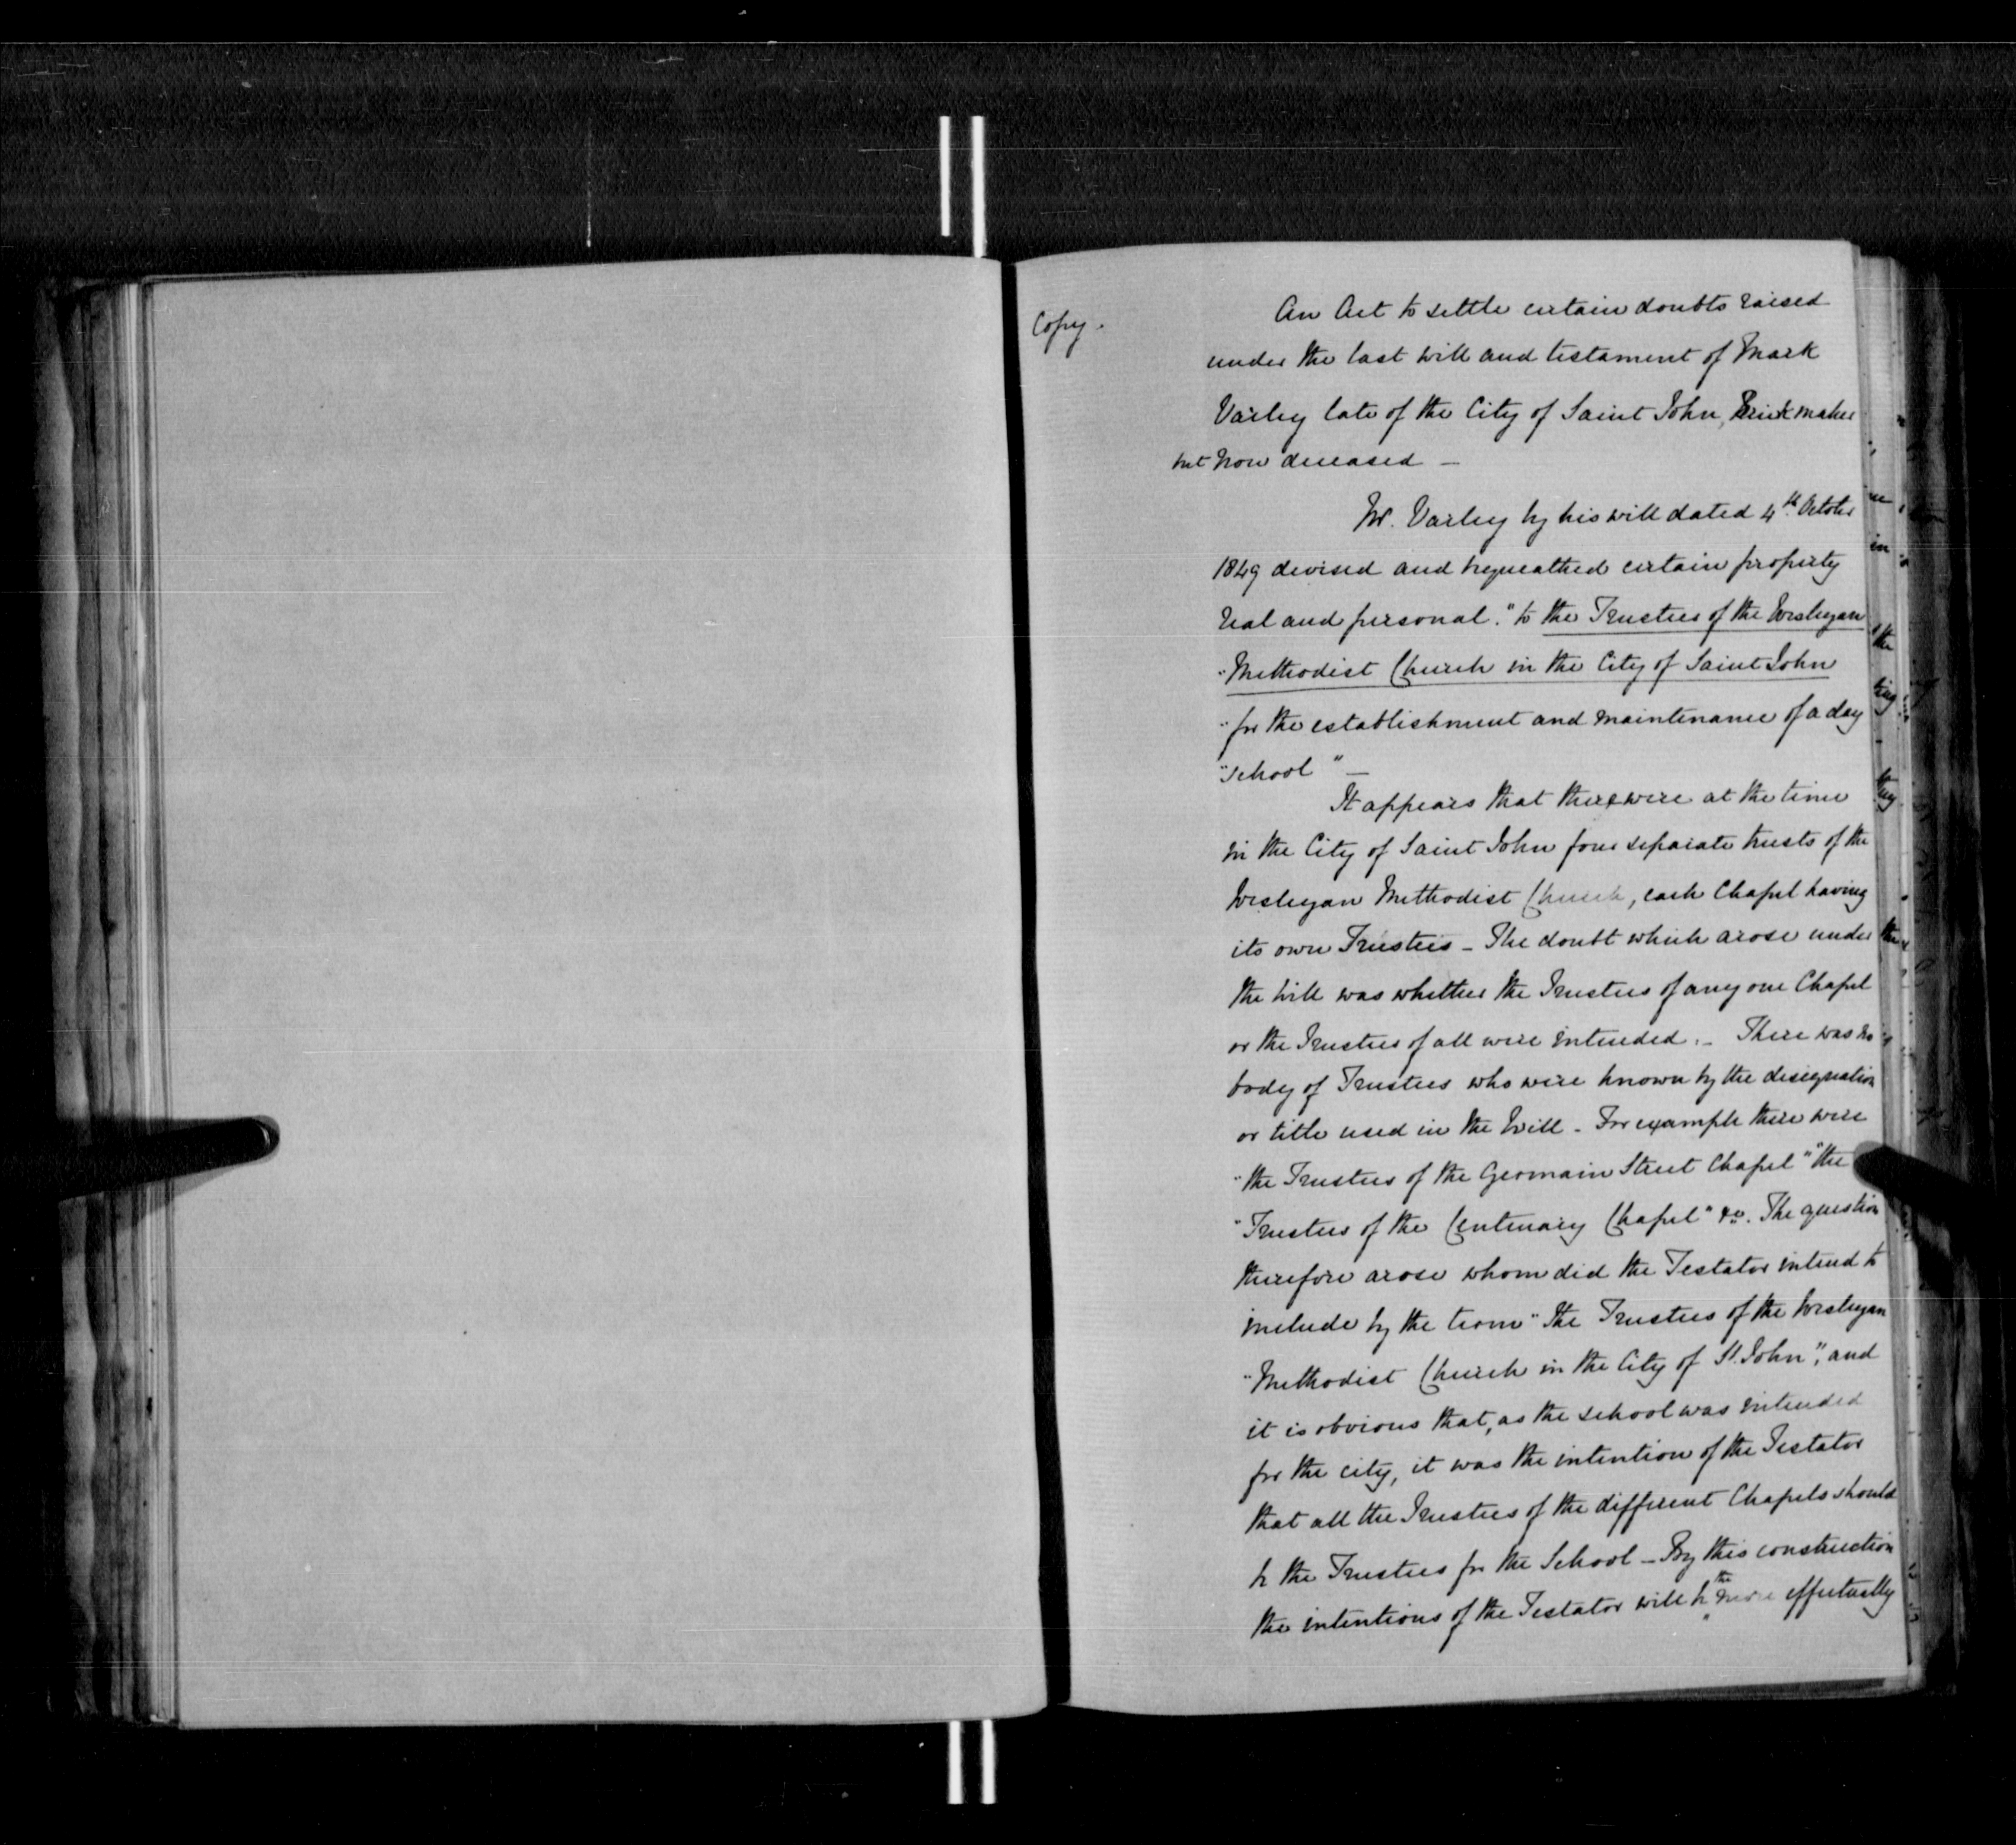 Copy.
An Act to settle certain doubts raised
under the last will and testament of Mark
Varley late of the City of Saint John, Brickmaker
but now deceased —
Mr. Varley by his will dated 4th October
1849 devised and bequeathed certain property
real and personal. "to the Trustees of the Wesleyan
"Methodist Church in the City of Saint John
"for the establishment and maintenance of a day
"school" —
It appears that there were at the time
in the City of Saint John four separate trusts of the
Wesleyan Methodist Church, each Chapel having
its own Trustees – The doubt which arose under
the will was whether the Trustees of any one Chapel
or the Trustees of all were intended. – There was no
body of Trustees who were known by the designation
or title used in the Will – For example there were
"the Trustees of the Germain Street Chapel" "the
"Trustees of the Centenary Chapel" &c. The question
therefore arose whom did the Testator intend to
include by the term "the Trustees of the Wesleyan
"Methodist Church in the City of St. John", and
it is obvious that, as the school was intended
for the city, it was the intention of the Testator
that all the Trustees of the different Chapels should
be the Trustees for the School – By this construction
the intentions of the Testator will be the more effectually
in
the
ting
they
the